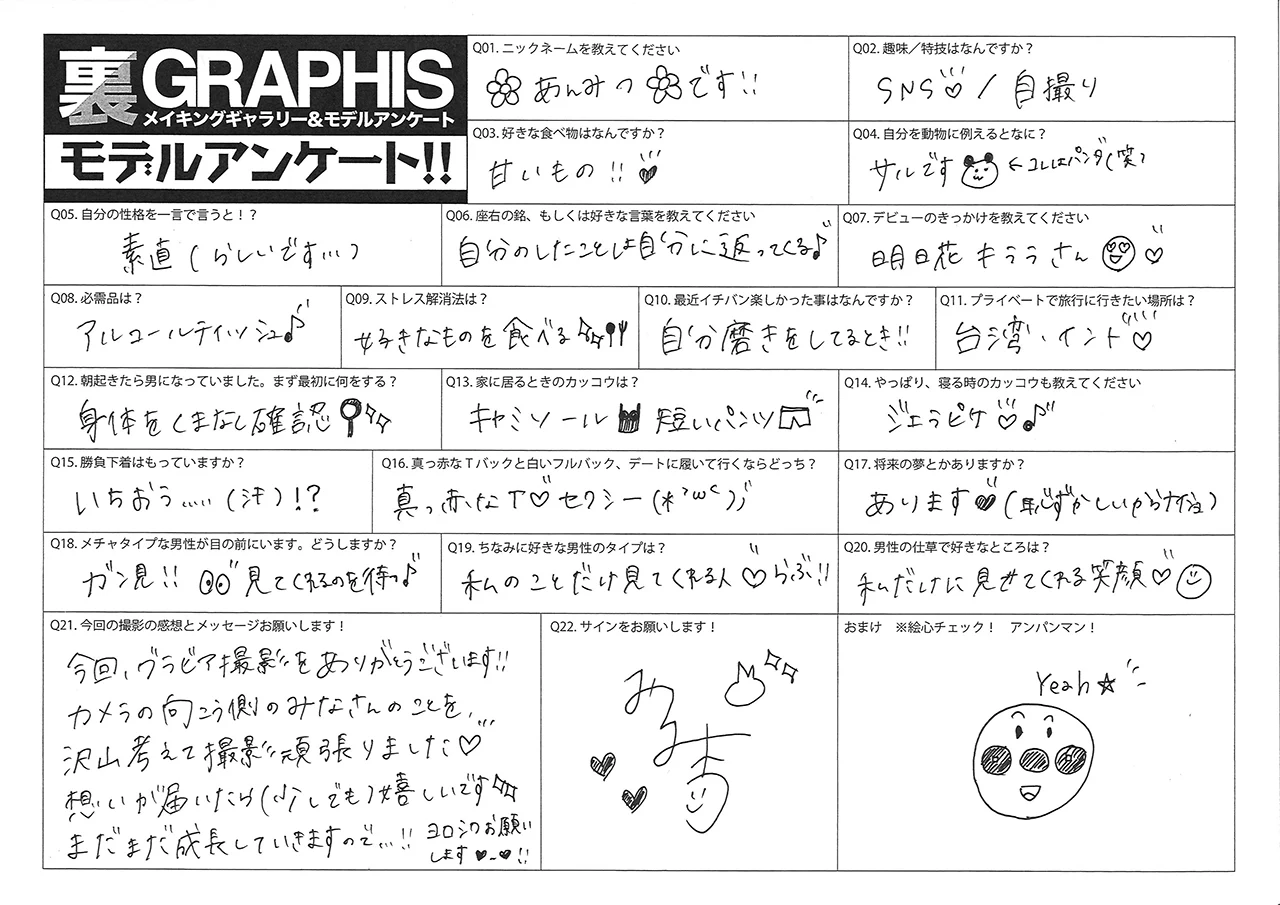 裏GRAPHIS
メイキングギャラリー&モデルアンケート
モデルアンケート!!
Q01. ニックネームを教えてください
あんみつ です!!
Q02. 趣味／特技はなんですか？
SNS♡ / 自撮り
Q03. 好きな食べ物はなんですか？
甘いもの!!♥
Q04. 自分を動物に例えるとなに？
サルです ←コレはパンダ(笑)
Q05. 自分の性格を一言で言うと！？
素直(らしいです…)
Q06. 座右の銘、もしくは好きな言葉を教えてください
自分のしたことは自分に返ってくる♪
Q07. デビューのきっかけを教えてください
明日花キララさん ♡
Q08. 必需品は？
アルコールティッシュ♪
Q09. ストレス解消法は？
好きなものを食べる
Q10. 最近イチバン楽しかった事はなんですか？
自分磨きをしてるとき!!
Q11. プライベートで旅行に行きたい場所は？
台湾・インド♡
Q12. 朝起きたら男になっていました。まず最初に何をする？
身体をくまなく確認
Q13. 家に居るときのカッコウは？
キャミソール 短いパンツ
Q14. やっぱり、寝る時のカッコウも教えてください
ジェラピケ♡♪
Q15. 勝負下着はもっていますか？
いちおう……(汗)!?
Q16. 真っ赤なTバックと白いフルバック、デートに履いて行くならどっち？
真っ赤なT♡セクシー(*'ω')
Q17. 将来の夢とかありますか？
あります♥(恥ずかしいからナイショ)
Q18. メチャタイプな男性が目の前にいます。どうしますか？
ガン見!! 見てくれるのを待つ♪
Q19. ちなみに好きな男性のタイプは？
私のことだけ見てくれる人♡らぶ!!
Q20. 男性の仕草で好きなところは？
私だけに見せてくれる笑顔♡
Q21. 今回の撮影の感想とメッセージお願いします！
今回、グラビア撮影をありがとうございます!!
カメラの向こう側のみなさんのことを、
沢山考えて撮影頑張りました♡
想いが届いたら(少しでも)嬉しいです
まだまだ成長していきますので…!! ヨロシクお願い
します♥_♥!!
Q22. サインをお願いします！
おまけ ※絵心チェック！ アンパンマン！
Yeah☆